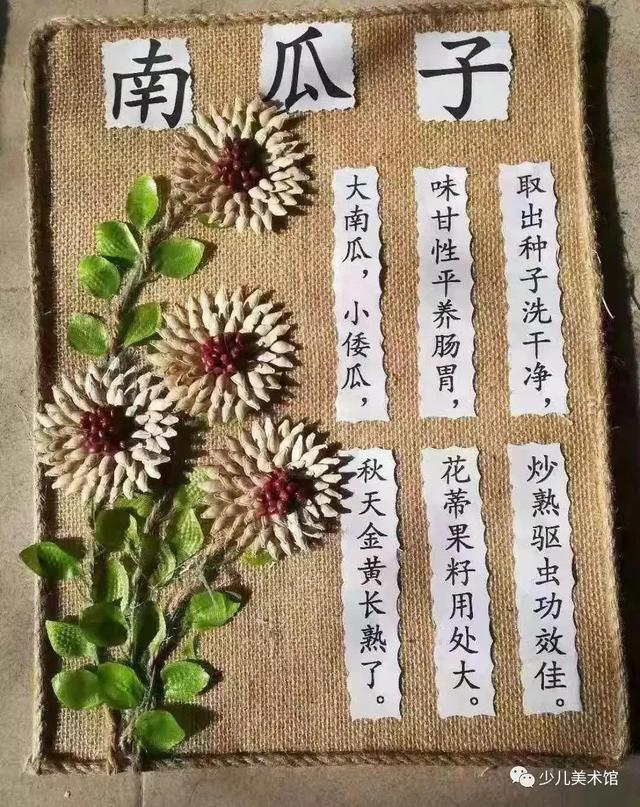 南瓜子
大南瓜，小倭瓜，
秋天金黄长熟了。
味甘性平养肠胃，
花蒂果籽用处大。
取出种子洗干净，
炒熟驱虫功效佳。
少儿美术馆